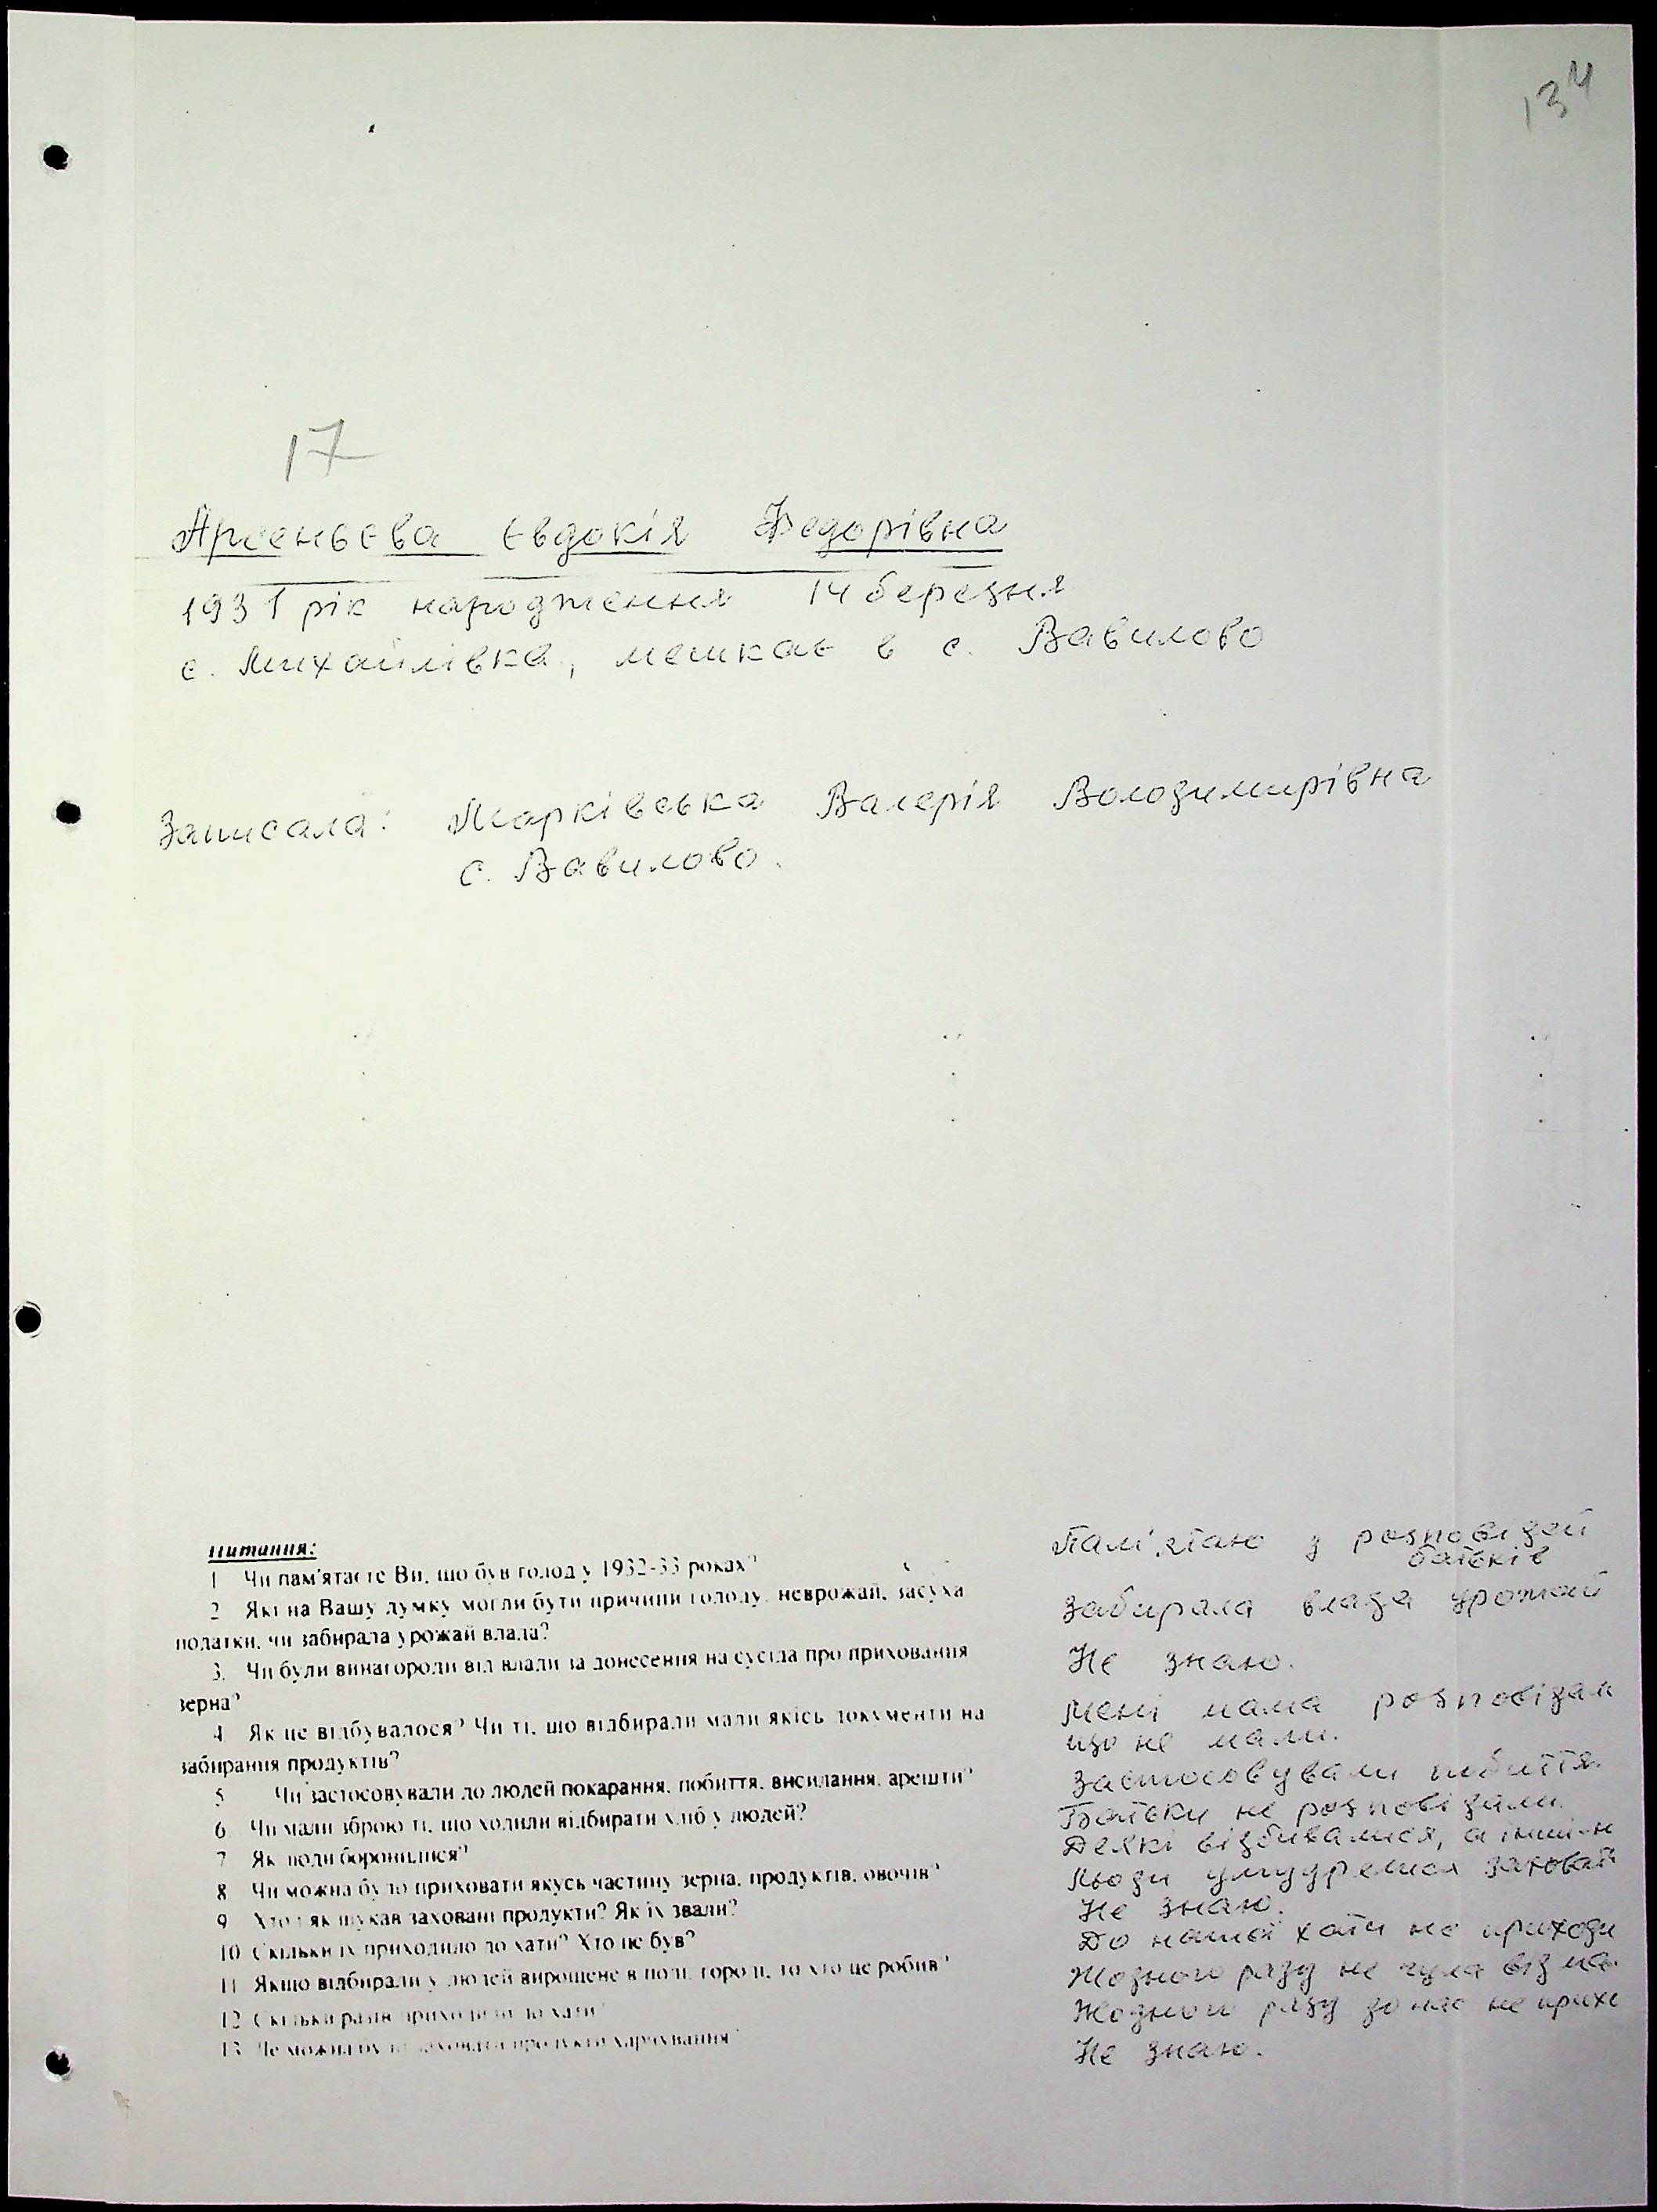 134
17
Арсеньєва Євдокія Федорівна
1931 рік народження 14 березня
с. Михайлівка, мешкає в с. Вавилово
Записала: Марківська Валерія Володимирівна
с. Вавилово.
Питання:
1 Чи пам'ятаєте Ви, що був голод у 1932-33 роках?
Пам'ятаю з розповідей батьків
2 Які на Вашу думку могли бути причини голоду, неврожай, засуха
податки, чи забирала урожай влада?
Забирала влада урожай
3. Чи були винагороди від влади за донесення на сусіда про приховання
зерна?
Не знаю.
4 Як це відбувалося? Чи ті, що відбирали мали якісь документи на
забирання продуктів?
Мені мама розповідал
що не мали.
5 Чи застосовували до людей покарання, побиття, висилання, арешти?
Застосовували побиття.
6 Чи мали зброю ті, що ходили відбирати хліб у людей?
Батьки не розповідали.
7 Як люди боронилися?
Деякі відбивалися, а інші-н
8 Чи можна було приховати якусь частину зерна, продуктів, овочів?
Люди умудрялися заховат
9 Хто і як шукав заховані продукти? Як їх звали?
Не знаю.
10 Скільки їх приходило до хати? Хто це був?
До нашої хати не приходи
11 Якщо відбирали у людей вирощене в полі, городі, то хто це робив?
Жодного разу не чула від ма
12 Скільки разів приходили до хати?
Жодного разу до нас не прихо
13 Де можна було заховати продукти харчування?
Не знаю.